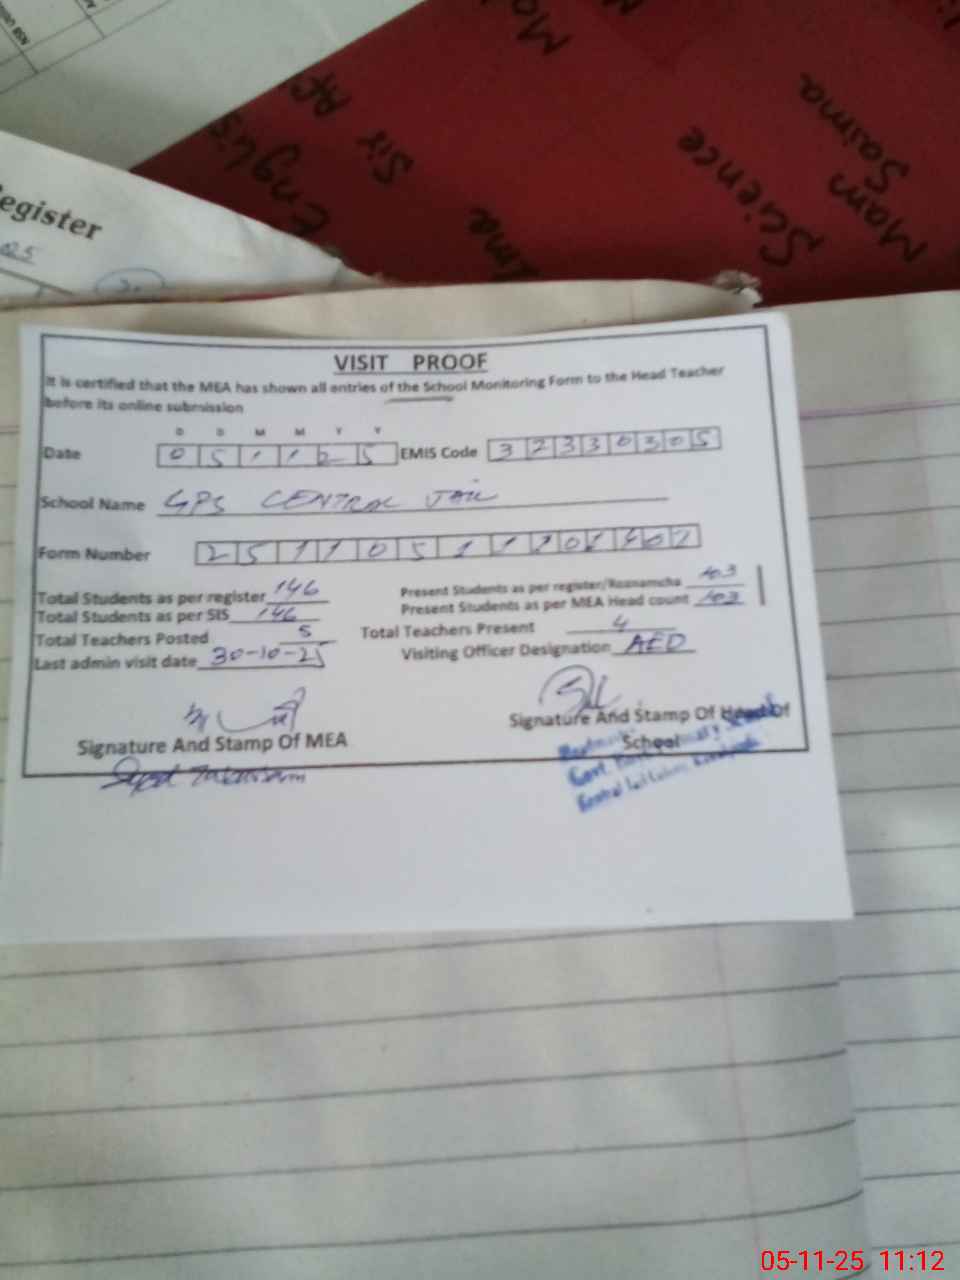 NSB
egister
Englis
Sir
Science
Mam
Saima
VISIT PROOF
It is certified that the MEA has shown all entries of the School Monitoring Form to the Head Teacher
before its online submission
D D M M Y Y
Date 0 5 1 1 2 5 EMIS Code 3 2 3 3 0 3 0 5
School Name GPS CENTRAL JAIL
Form Number
Total Students as per register 146 Present Students as per register/Roznamcha 103
Total Students as per SIS 146 Present Students as per MEA Head count 103
Total Teachers Posted 5 Total Teachers Present 4
Last admin visit date 30-10-25 Visiting Officer Designation AED
Signature And Stamp Of MEA Signature And Stamp Of Head Of
School
Syed
05-11-25 11:12